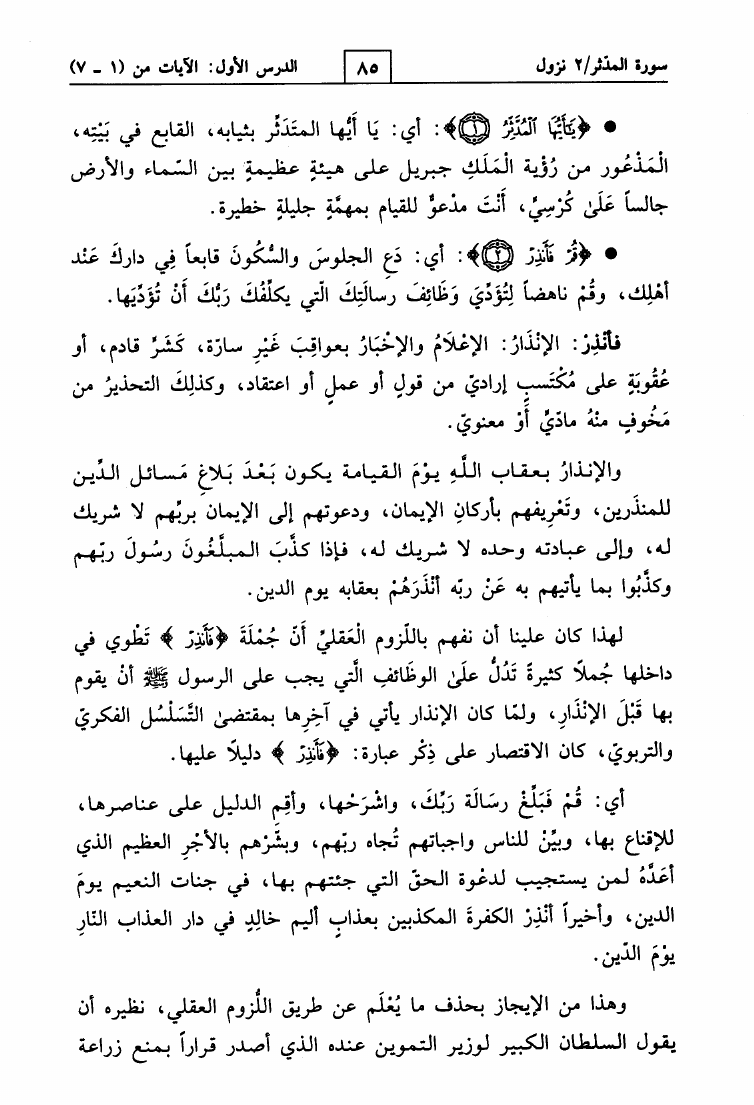 سورة المدّثر/٢ نزول ٨٥ الدرس الأول: الآيات من (١ - ٧)
● ﴿يَٰٓأَيُّهَا ٱلۡمُدَّثِّرُ ۝١﴾: أي: يَا أَيُّها المتَدَثِّر بثيابه، القابع في بَيْتِه،
الْمَذْعُور من رُؤْية الْمَلَكِ جبريل على هيئةٍ عظيمةٍ بين السّماء والأرض
جالساً عَلَىٰ كُرْسِيٍّ، أَنْتَ مدْعوٌّ للقيام بمهمَّةٍ جليلةٍ خطيرة.
● ﴿قُمۡ فَأَنذِرۡ ۝٢﴾: أي: دَعِ الجلوسَ والسُّكُونَ قابعاً فِي داركَ عَنْد
أهْلِك، وقُمْ ناهضاً لِتُؤَدِّيَ وَظَائِفَ رسالَتِكَ الّتي يكلِّفُكَ رَبُّكَ أَنْ تُؤَدِّيَها.
فأنْذِرْ: الإنْذَارُ: الإعْلَامُ والإخْبَارُ بعواقِبَ غَيْرِ سارّة، كَشَرٍّ قادم، أو
عُقُوبَةٍ على مُكْتَسبٍ إراديّ من قولٍ أو عملٍ أو اعتقاد، وكذلِكَ التحذيرُ من
مَخُوفٍ منْهُ مادّيٍّ أَوْ معنويّ.
والإنذارُ بعقاب اللَّهِ يوْمَ القيامة يكون بَعْدَ بَلاغِ مَسائل الدِّين
للمنذَرين، وتَعْرِيفهم بأركانِ الإيمان، ودعوتهم إلى الإيمان بربِّهم لا شريك
له، وإلى عبادته وحده لا شريك له، فإذا كذَّبَ المبلَّغُونَ رسُولَ ربّهم
وكذَّبُوا بما يأتيهم به عَنْ ربّه أنْذَرَهُمْ بعقابه يوم الدين.
لهذا كان علينا أن نفهم باللّزوم الْعَقليِّ أَنّ جُمْلَةَ ﴿فَأَنذِرۡ﴾ تَطْوي في
داخلها جُملاً كثيرةً تَدُلُّ عَلَىٰ الوظَائفِ الَّتي يجب على الرسول ﷺ أنْ يقوم
بها قَبْلَ الإنْذَارِ، ولمّا كان الإنذار يأتي في آخِرِها بمقتضىٰ التَّسَلْسُل الفكريّ
والتربويّ، كان الاقتصار على ذِكْر عبارة: ﴿فَأَنذِرۡ﴾ دليلاً عليها.
أي: قُمْ فَبَلِّغْ رسَالَة رَبِّكَ، واشْرَحْها، وأقِم الدليل على عناصرها،
للإقناع بها، وبيِّنْ للناس واجباتهم تُجاه ربّهم، وبشَّرْهم بالأجْرِ العظيم الذي
أعَدَّهُ لمن يستجيب لدعْوة الحقّ التي جئتهم بها، في جنات النعيم يومَ
الدين، وأخيراً أنْذِرْ الكفرةَ المكذبين بعذابٍ أليم خالدٍ في دار العذاب النّارِ
يوْمَ الدّين.
وهذا من الإيجاز بحذف ما يُعْلَم عن طريق اللُّزوم العقلي، نظيره أن
يقول السلطان الكبير لوزير التموين عنده الذي أصدر قراراً بمنع زراعة